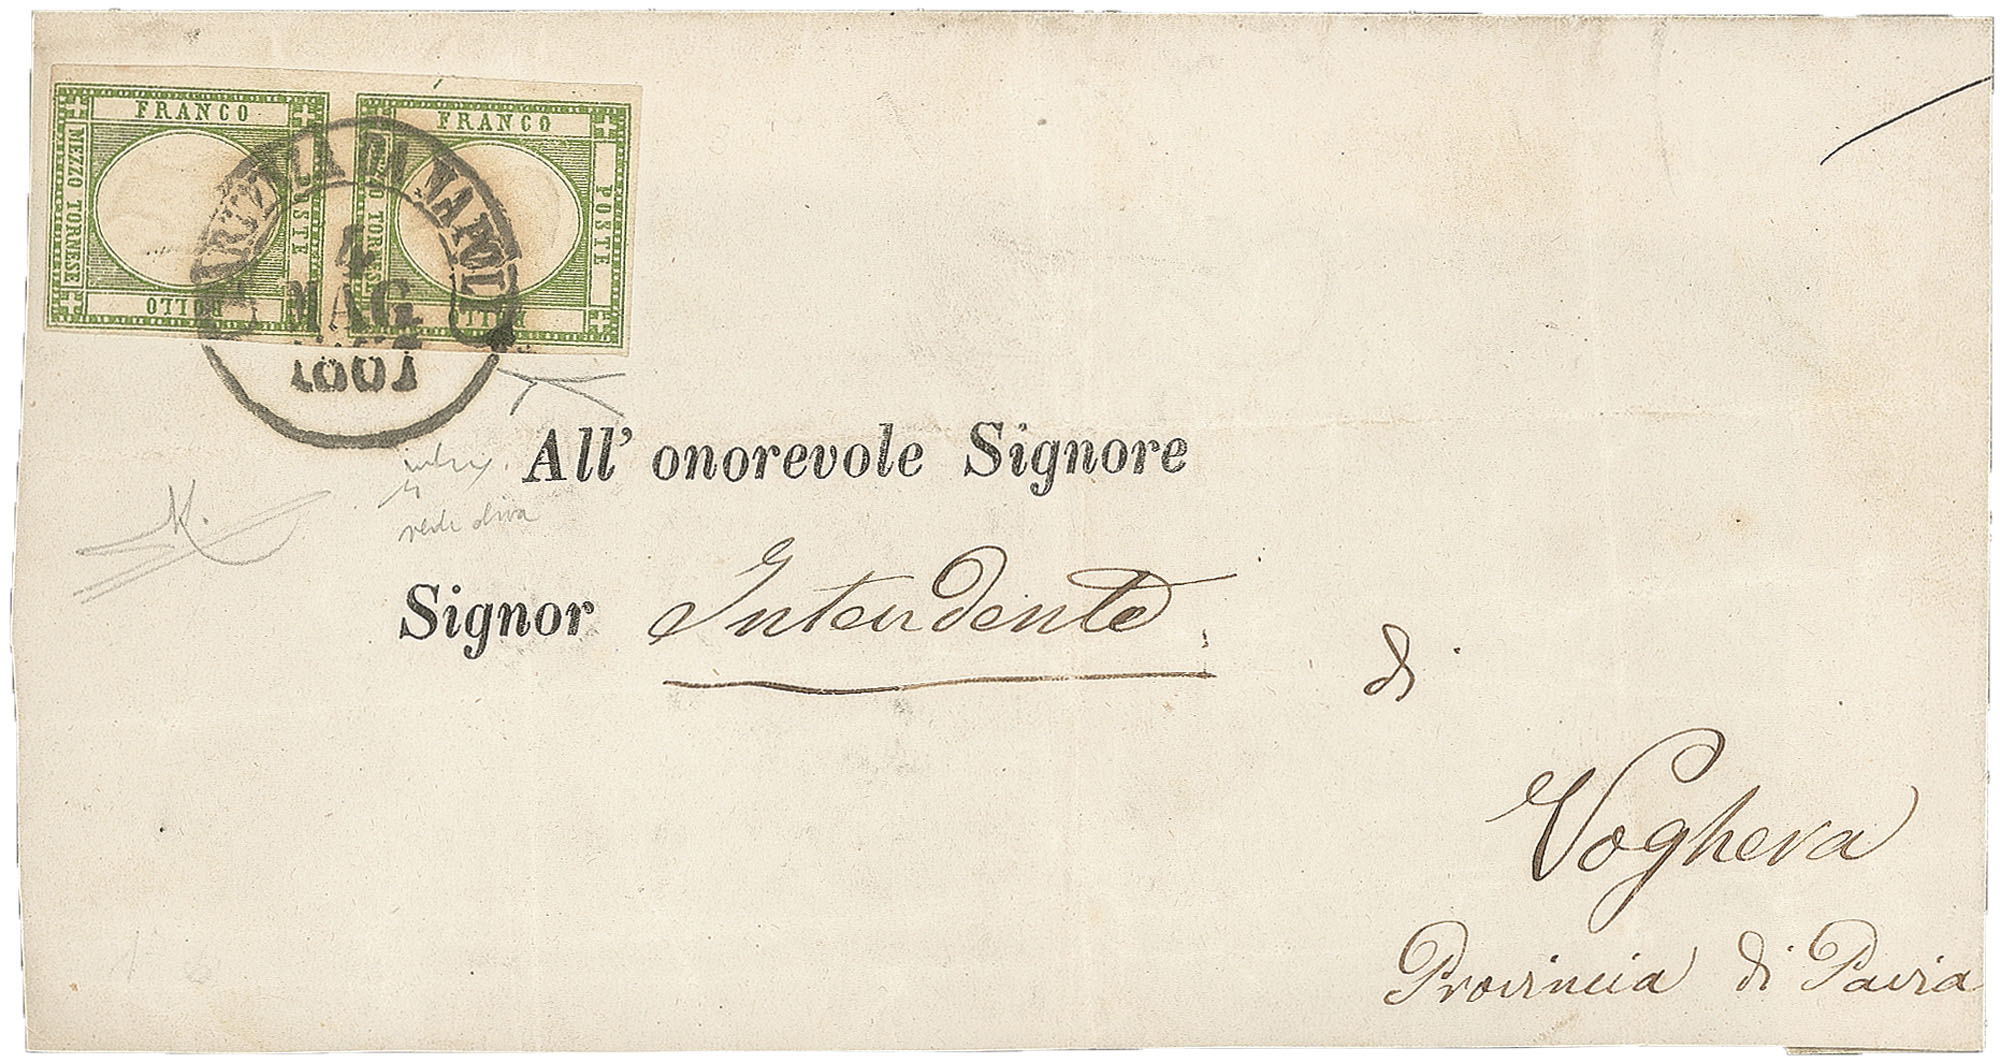 FRANCO FRANCO
MEZZO TORNESE POSTE TORNESE POSTE
BOLLO BOLLO
DI NAPOLI
4
MAG
All' onorevole Signore
verde oliva
Signor Intendente
di
Voghera
Provincia di Pavia